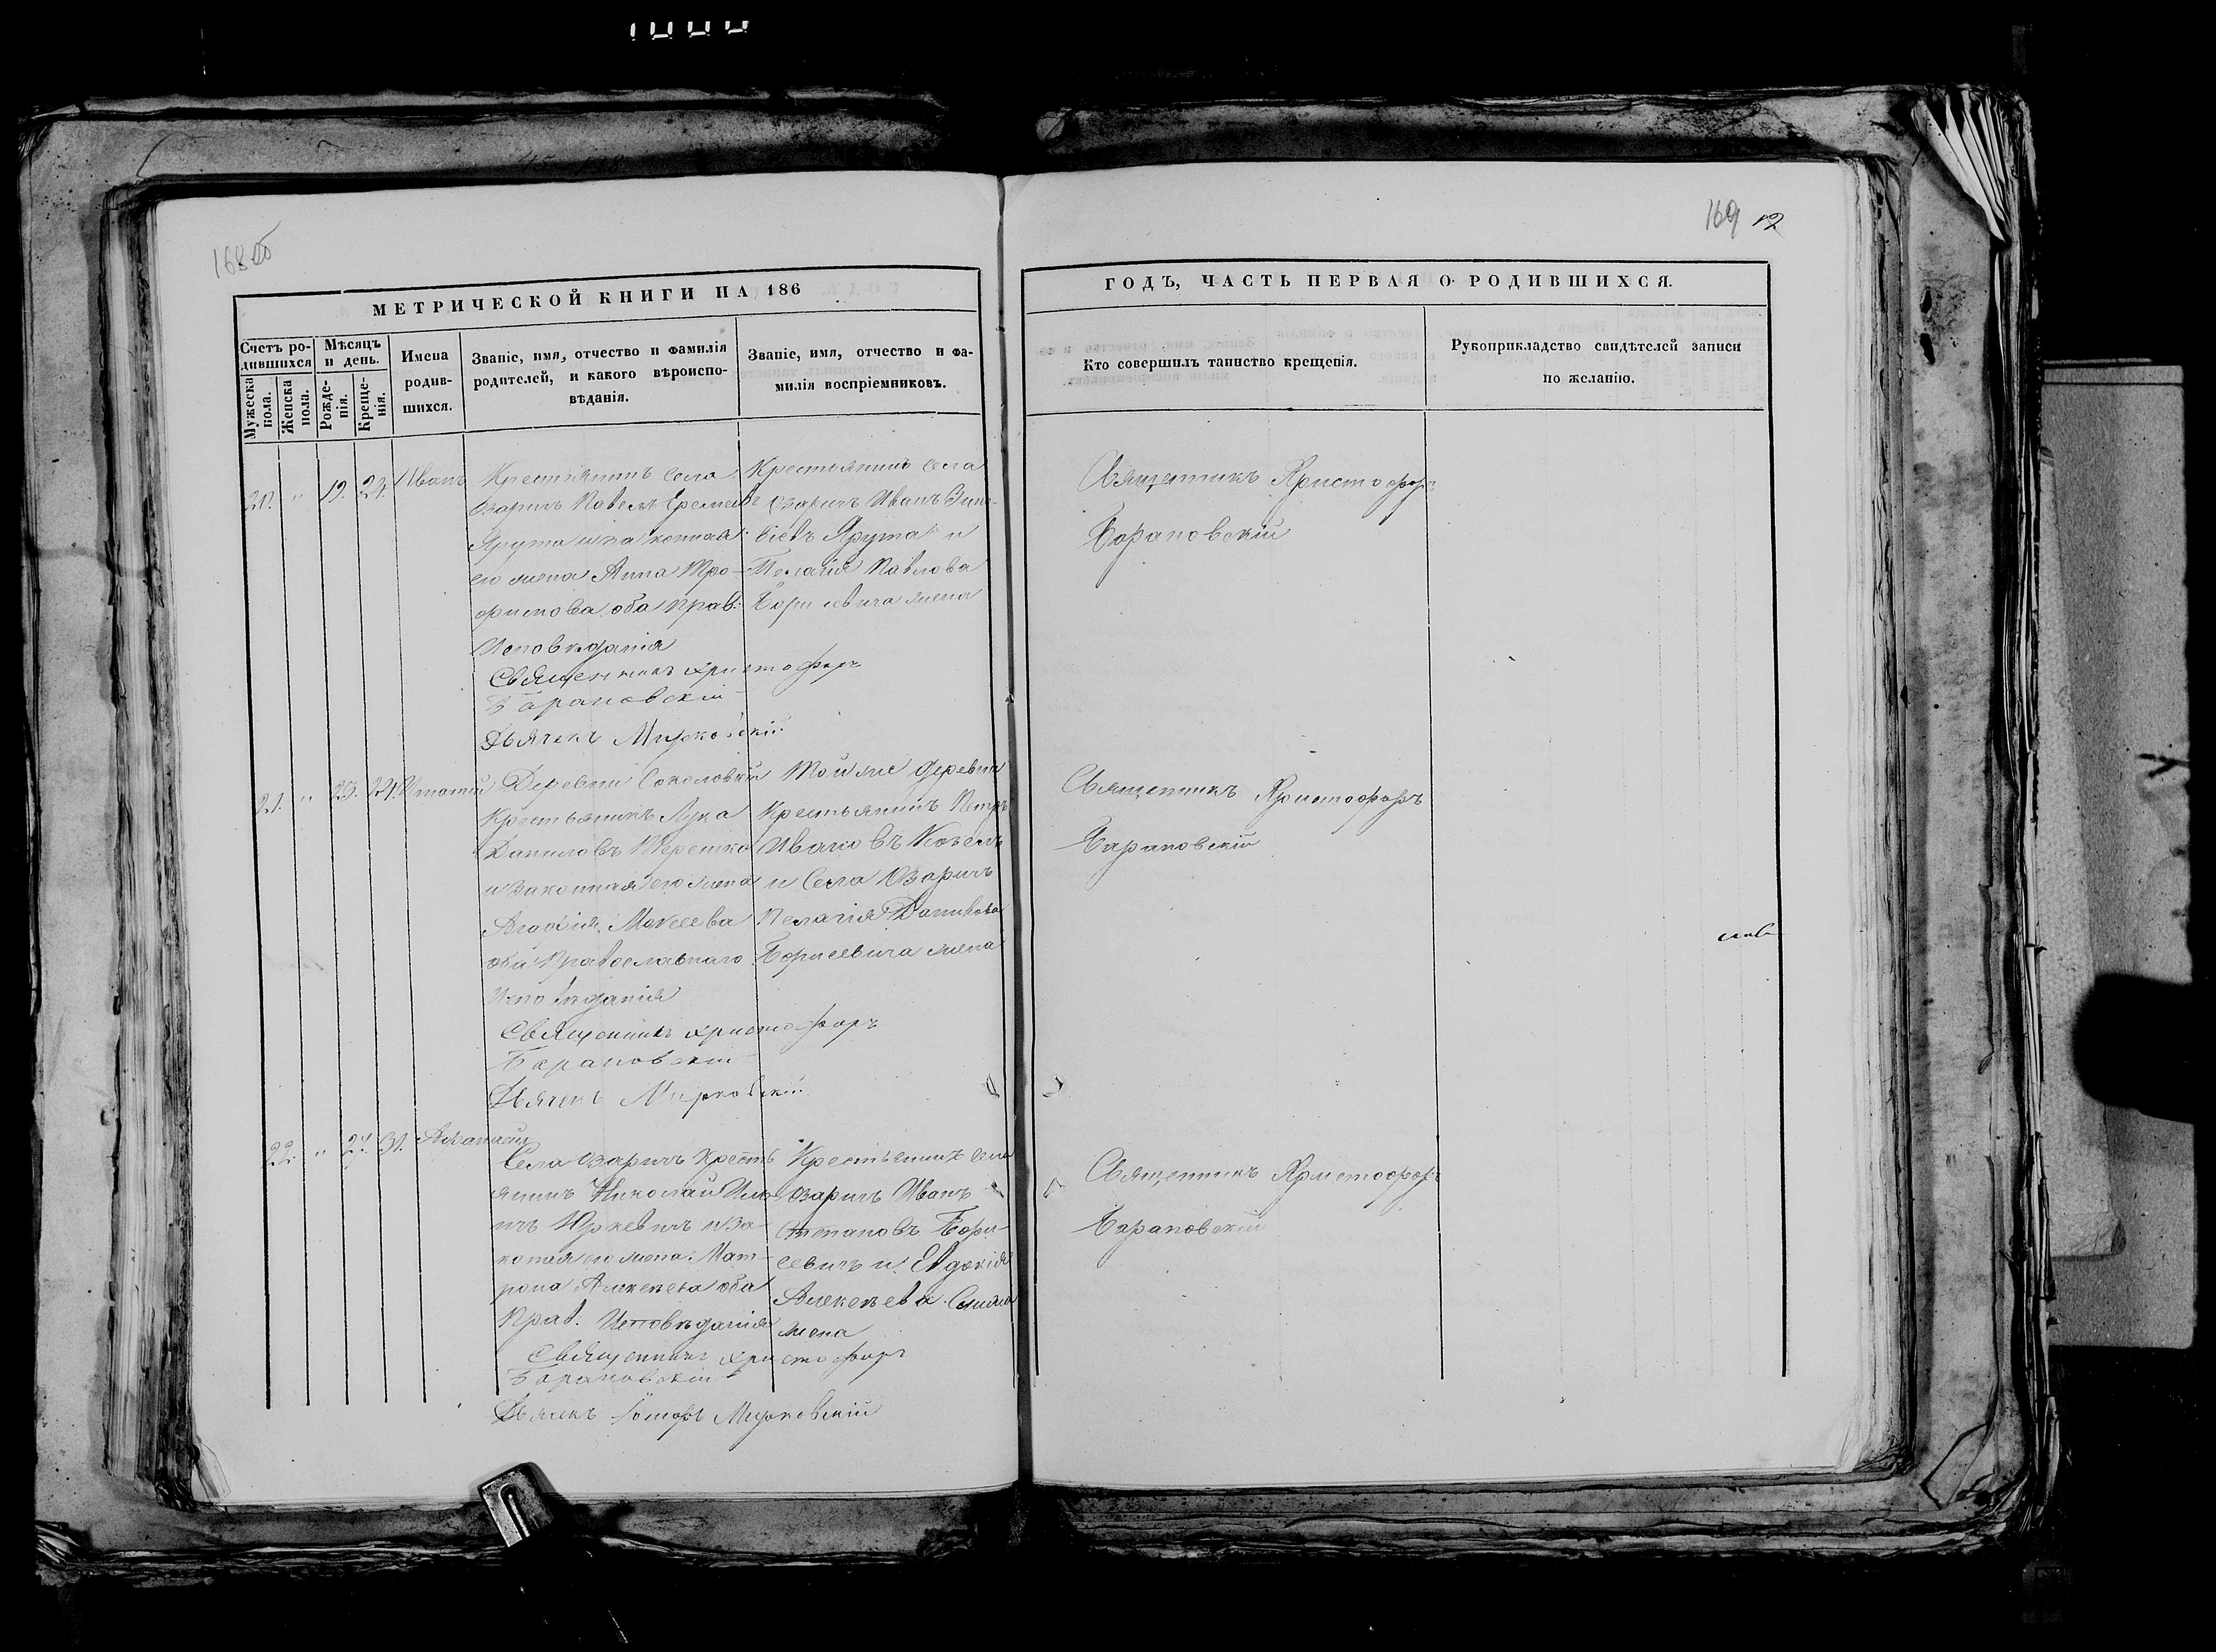 168 об
169 12
МЕТРИЧЕСКОЙ КНИГИ НА 186
Счетъ ро-
дившихся
Мужеска
пола.
Женска
пола.
Мѣсяцъ
и день.
Рожде-
нія.
Креще-
нія.
Имена
родив-
шихся.
Званіе, имя, отчество и фамилія
родителей, и какого вѣроиспо-
вѣданія.
Званіе, имя, отчество и фа-
милія воспріемниковъ.
20. " 19. 24. Иванъ
Крестьянинъ села
Озаричъ Павелъ Еремеевъ
Ярута и законная
его жена Анна Тро-
фимова оба прав.
Исповѣданія
Священникъ Христофоръ
Барановскій
Дьячекъ Мирковскій
Крестьянинъ села
Озаричъ Иванъ Зино-
віевъ Ярута и
Пелагія Павлова
Борисевича жена
21. " 23. 24. Игнатій
Деревни Соколовки
Крестьянинъ Лука
Даниловъ Терешко
и законная его жена
Агафія Мокеева
оба Православнаго
Исповѣданія
Священникъ Христофоръ
Барановскій
Дьячекъ Мирковскій
Той же деревни
Крестьянинъ Петръ
Ивановъ Козелъ
и Села Озаричъ
Пелагія
Борисевича жена
22. " 27. 31. Афанасій
Села Озаричъ Кресть
янинъ Николай Иль
ичъ Юркевичъ и за-
коная его жена Мат-
рона Алексеева оба
Прав. Исповѣданія
Священникъ Христофоръ
Барановскій
Дьячекъ Мирковскій
Крестьянинъ села
Озаричъ Иванъ
Степановъ Бори-
севичъ и Евдокія
Алексеева
жена
ГОДЪ, ЧАСТЬ ПЕРВАЯ О РОДИВШИХСЯ.
Кто совершилъ таинство крещенія.
Рукоприкладство свидѣтелей записи
по желанію.
Священникъ Христофоръ
Барановскій
Священникъ Христофоръ
Барановскій
Священникъ Христофоръ
Барановскій